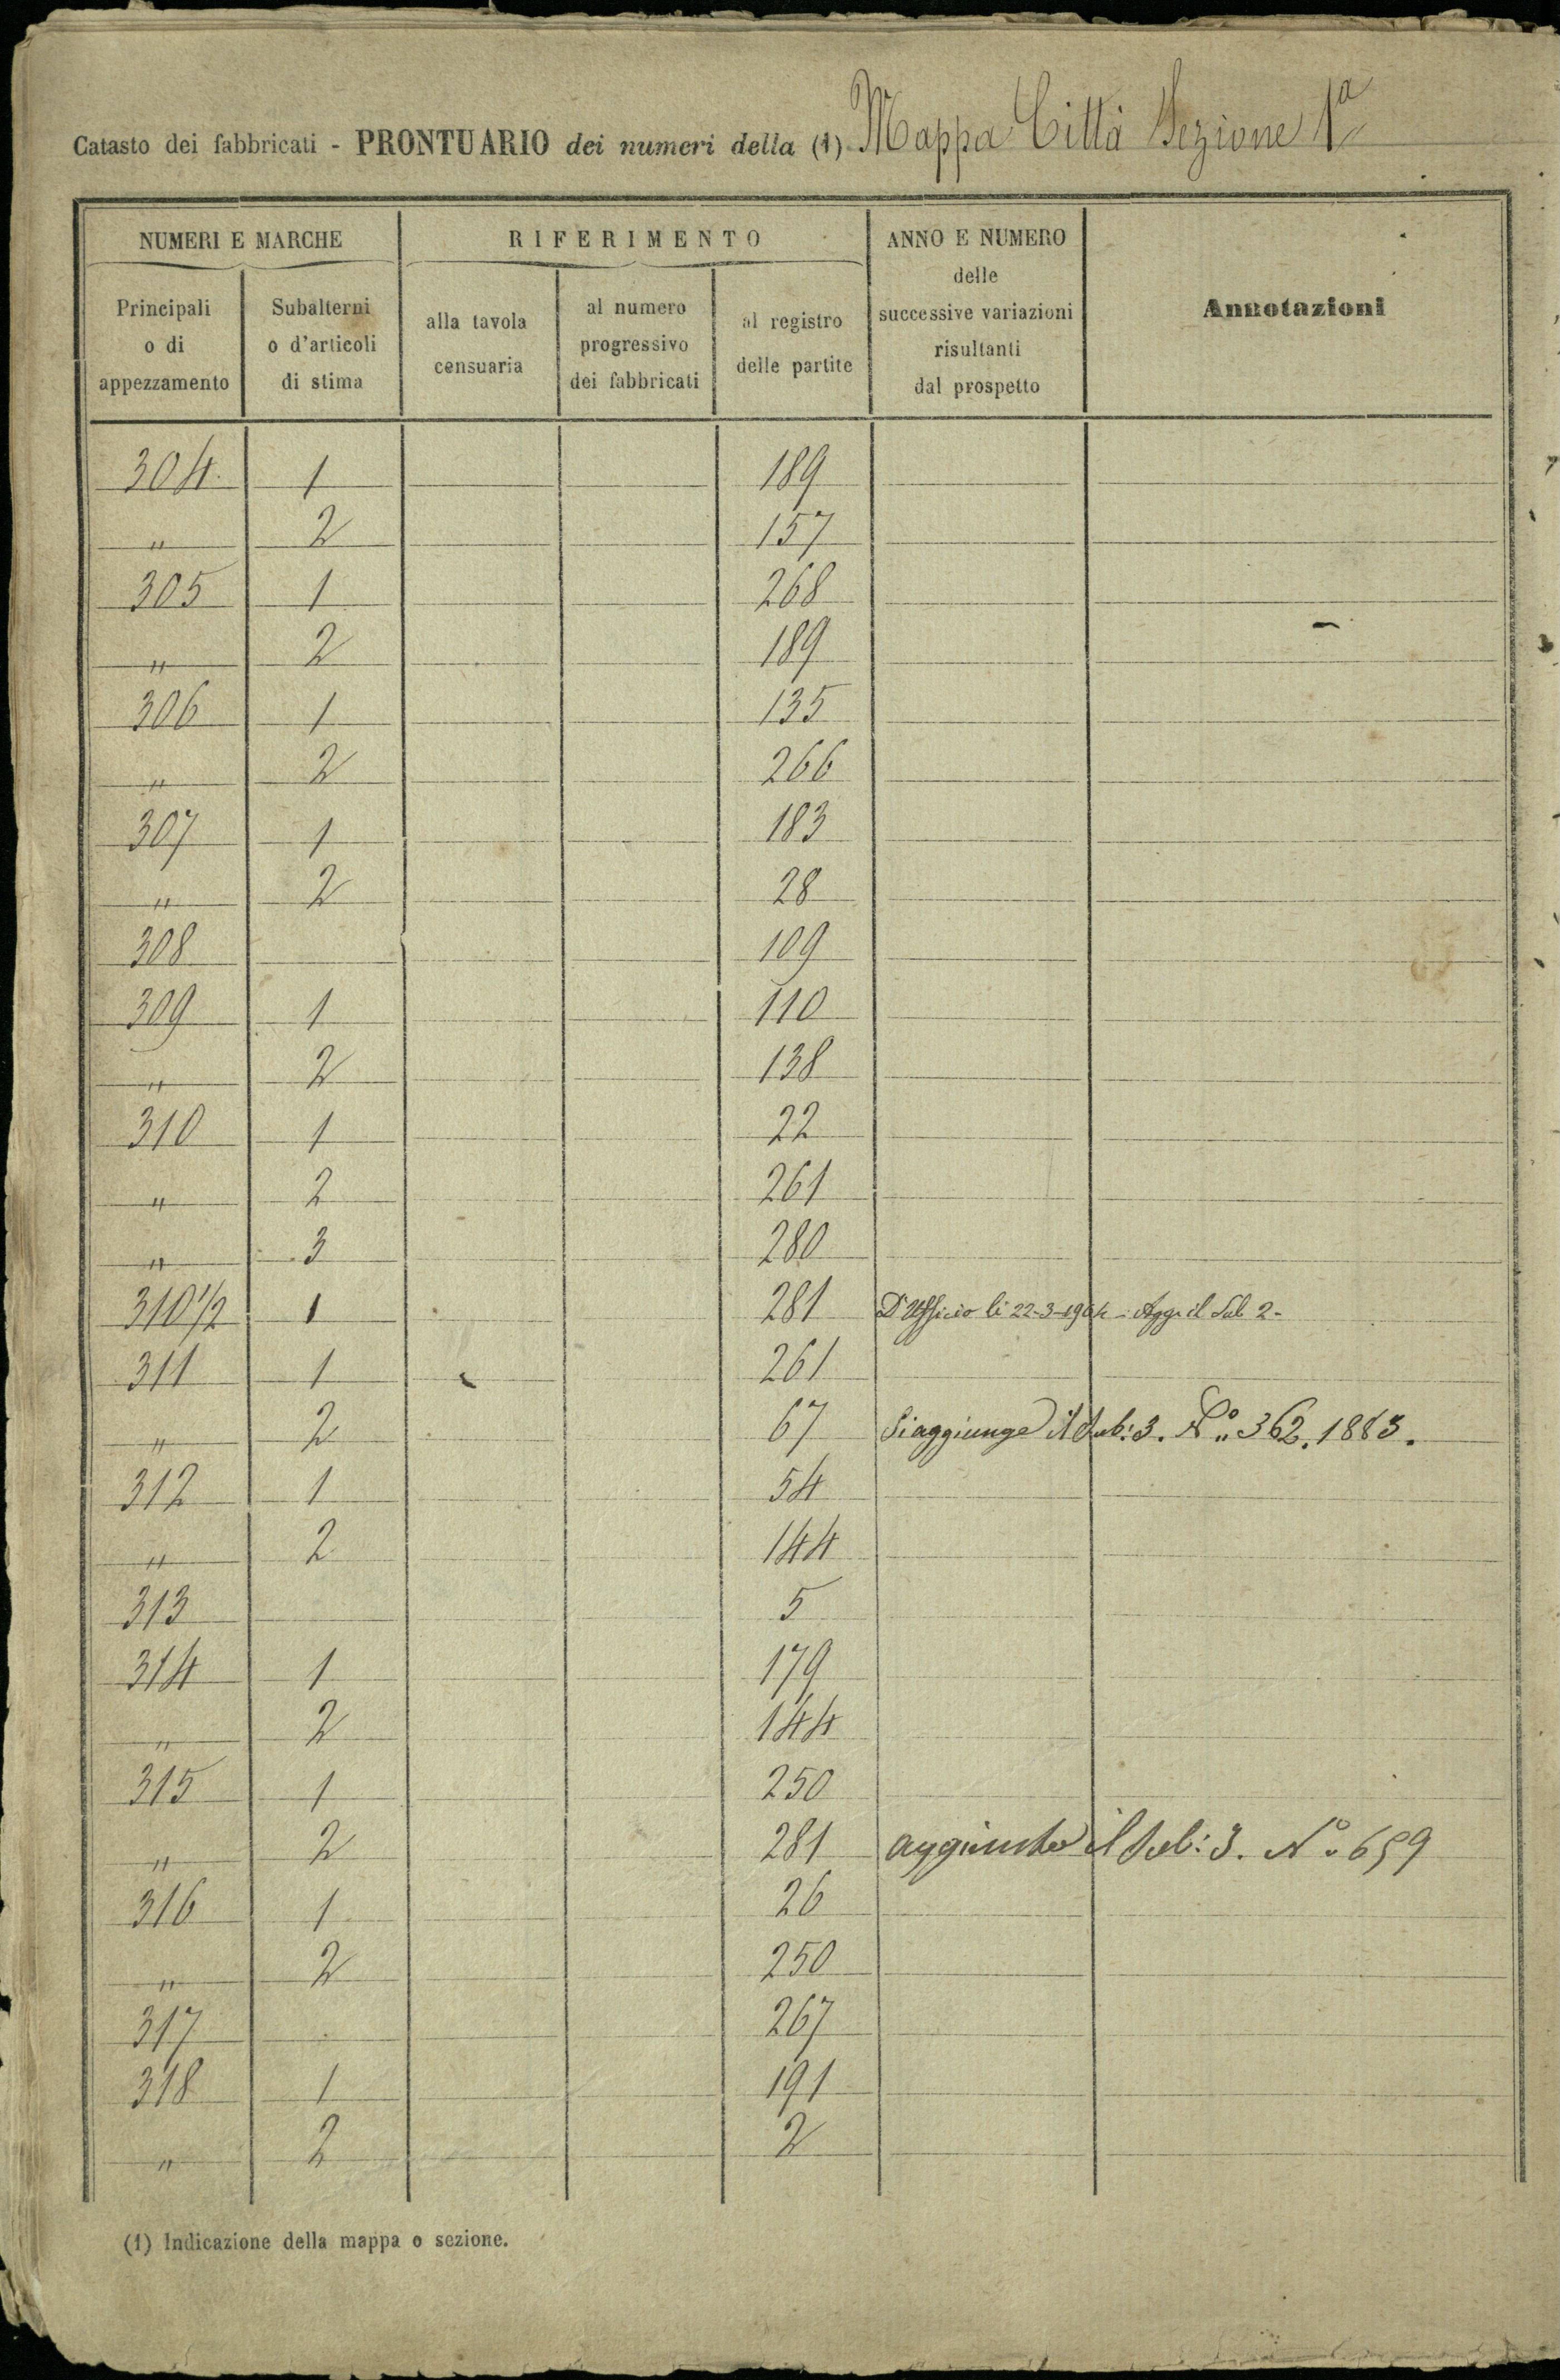 Catasto dei fabbricati - PRONTUARIO dei numeri della (1) Mappa Città Sezione 1ª
NUMERI E MARCHE
RIFERIMENTO
ANNO E NUMERO
delle
successive variazioni
risultanti
dal prospetto
Annotazioni
Principali
o di
appezzamento
Subalterni
o d'articoli
di stima
alla tavola
censuaria
al numero
progressivo
dei fabbricati
al registro
delle partite
304 1 189
" 2 157
305 1 268
" 2 189
306 1 135
" 2 266
307 1 183
" 2 28
308 109
309 1 110
" 2 138
310 1 22
" 2 261
" 3 280
310 1/2 1 281 D'Ufficio li 22-3-1904 - Agg. il Sub 2-
311 1 261
" 2 67 Si aggiunge il Sub: 3. N° 362. 1883.
312 1 54
" 2 144
313 5
314 1 179
" 2 144
315 1 250
" 2 281 aggiunto il Sub: 3. N° 659
316 1 26
" 2 250
317 267
318 1 191
" 2 2
(1) Indicazione della mappa o sezione.